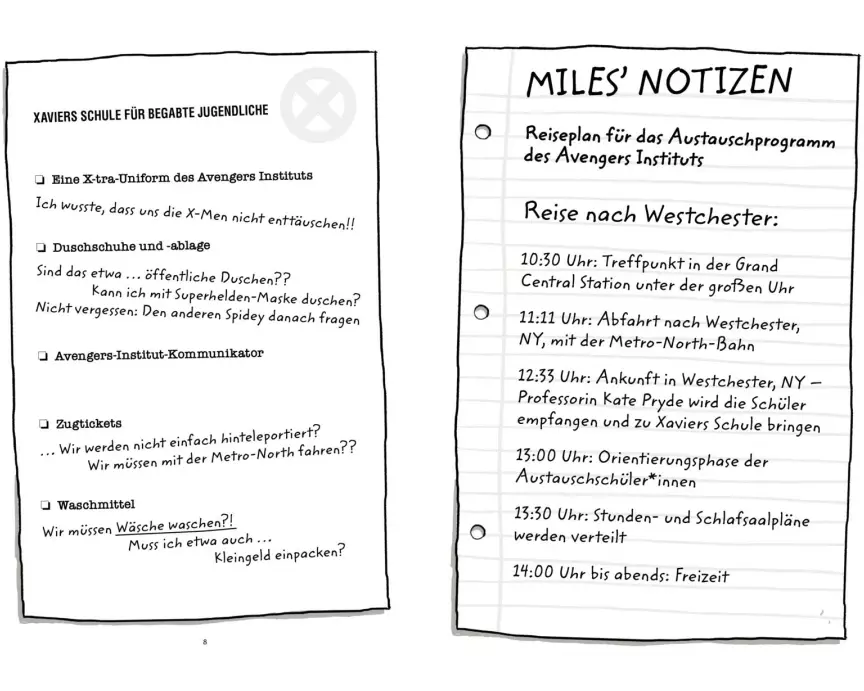 XAVIERS SCHULE FÜR BEGABTE JUGENDLICHE
❏ Eine X-tra-Uniform des Avengers Instituts
Ich wusste, dass uns die X-Men nicht enttäuschen!!
❏ Duschschuhe und -ablage
Sind das etwa ... öffentliche Duschen??
Kann ich mit Superhelden-Maske duschen?
Nicht vergessen: Den anderen Spidey danach fragen
❏ Avengers-Institut-Kommunikator
❏ Zugtickets
... Wir werden nicht einfach hinteleportiert?
Wir müssen mit der Metro-North fahren??
❏ Waschmittel
Wir müssen Wäsche waschen?!
Muss ich etwa auch ...
Kleingeld einpacken?
8
MILES' NOTIZEN
Reiseplan für das Austauschprogramm
des Avengers Instituts
Reise nach Westchester:
10:30 Uhr: Treffpunkt in der Grand
Central Station unter der großen Uhr
11:11 Uhr: Abfahrt nach Westchester,
NY, mit der Metro-North-Bahn
12:33 Uhr: Ankunft in Westchester, NY –
Professorin Kate Pryde wird die Schüler
empfangen und zu Xaviers Schule bringen
13:00 Uhr: Orientierungsphase der
Austauschschüler*innen
13:30 Uhr: Stunden- und Schlafsaalpläne
werden verteilt
14:00 Uhr bis abends: Freizeit